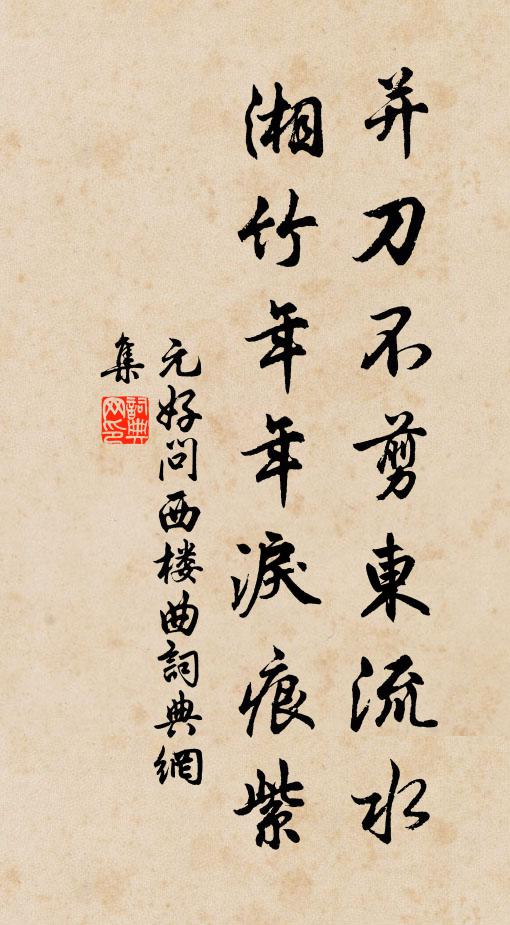 并刀不剪東流水
湘竹年年淚痕紫
元好问西楼曲詞典網
集
詞典網印